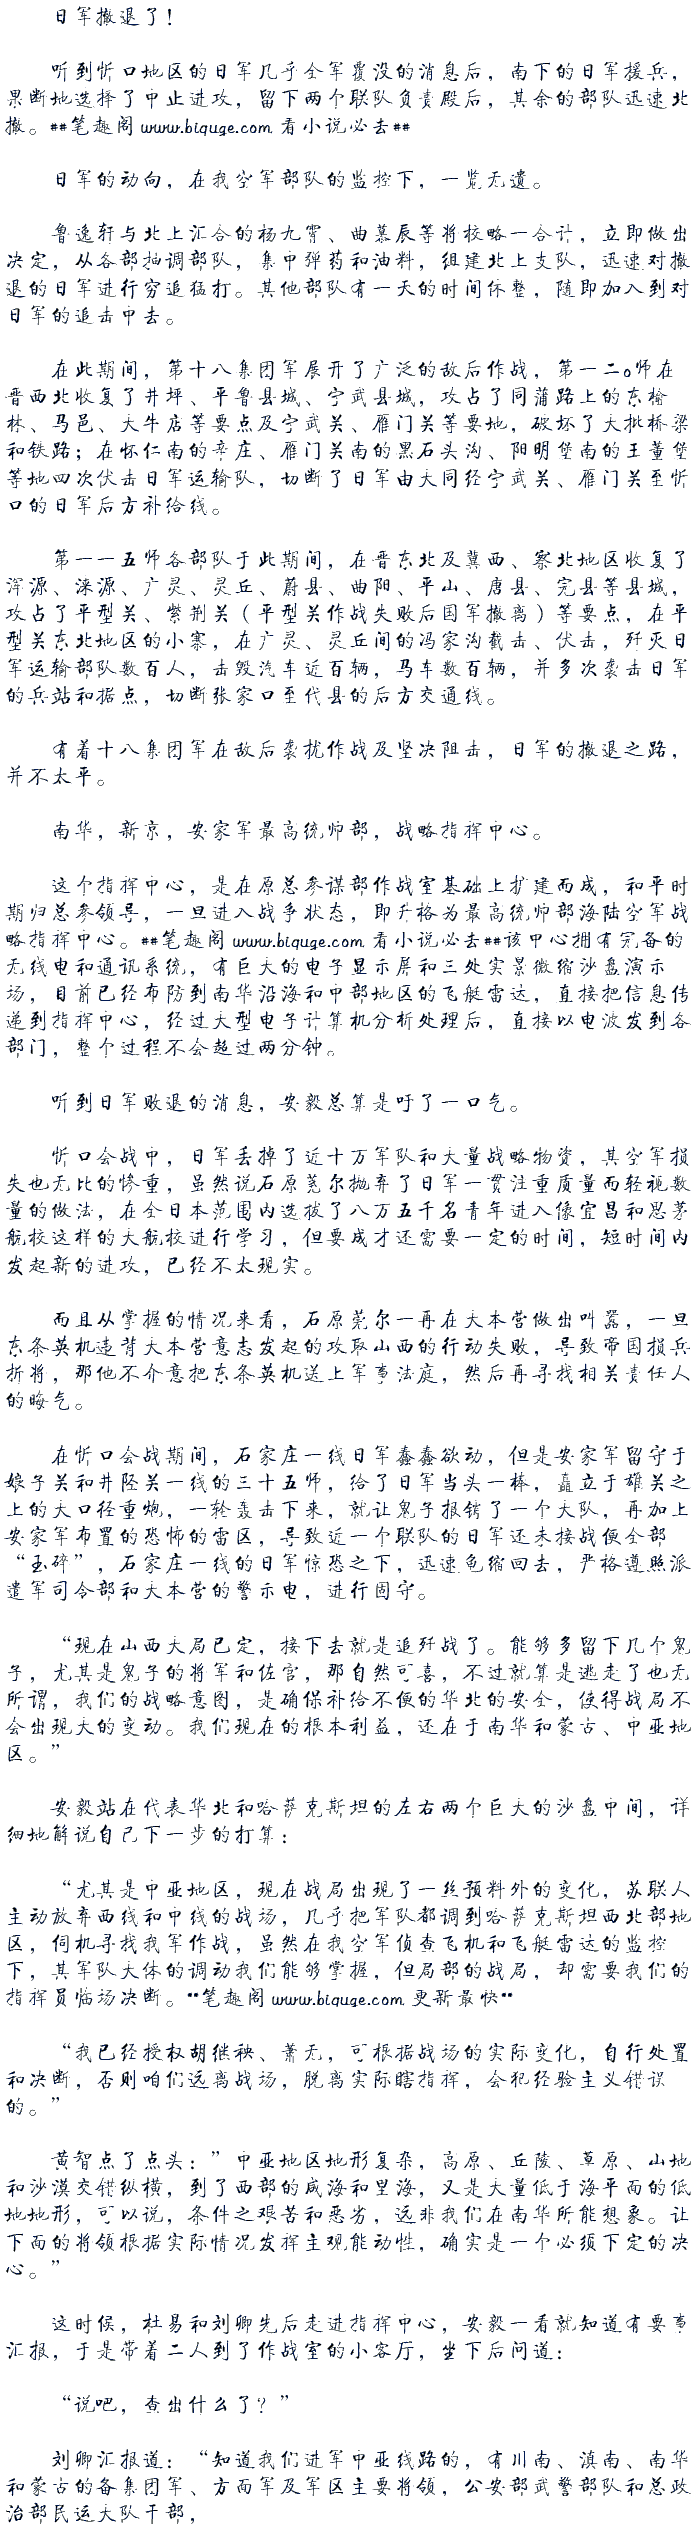 日军撤退了！
听到忻口地区的日军几乎全军覆没的消息后，南下的日军援兵，
果断地选择了中止进攻，留下两个联队负责殿后，其余的部队迅速北
撤。##笔趣阁 www.biquge.com 看小说必去##
日军的动向，在我空军部队的监控下，一览无遗。
鲁逸轩与北上汇合的杨九霄、曲慕辰等将校略一合计，立即做出
决定，从各部抽调部队，集中弹药和油料，组建北上支队，迅速对撤
退的日军进行穷追猛打。其他部队有一天的时间休整，随即加入到对
日军的追击中去。
在此期间，第十八集团军展开了广泛的敌后作战，第一二o师在
晋西北收复了井坪、平鲁县城、宁武县城，攻占了同蒲路上的东榆
林、马邑、大牛店等要点及宁武关、雁门关等要地，破坏了大批桥梁
和铁路；在怀仁南的辛庄、雁门关南的黑石头沟、阳明堡南的王董堡
等地四次伏击日军运输队，切断了日军由大同经宁武关、雁门关至忻
口的日军后方补给线。
第一一五师各部队于此期间，在晋东北及冀西、察北地区收复了
浑源、涞源、广灵、灵丘、蔚县、曲阳、平山、唐县、完县等县城，
攻占了平型关、紫荆关（平型关作战失败后国军撤离）等要点，在平
型关东北地区的小寨，在广灵、灵丘间的冯家沟截击、伏击，歼灭日
军运输部队数百人，击毁汽车近百辆，马车数百辆，并多次袭击日军
的兵站和据点，切断张家口至代县的后方交通线。
有着十八集团军在敌后袭扰作战及坚决阻击，日军的撤退之路，
并不太平。
南华，新京，安家军最高统帅部，战略指挥中心。
这个指挥中心，是在原总参谋部作战室基础上扩建而成，和平时
期归总参领导，一旦进入战争状态，即升格为最高统帅部海陆空军战
略指挥中心。##笔趣阁 www.biquge.com 看小说必去##该中心拥有完备的
无线电和通讯系统，有巨大的电子显示屏和三处实景微缩沙盘演示
场，目前已经布防到南华沿海和中部地区的飞艇雷达，直接把信息传
递到指挥中心，经过大型电子计算机分析处理后，直接以电波发到各
部门，整个过程不会超过两分钟。
听到日军败退的消息，安毅总算是吁了一口气。
忻口会战中，日军丢掉了近十万军队和大量战略物资，其空军损
失也无比的惨重，虽然说石原莞尔抛弃了日军一贯注重质量而轻视数
量的做法，在全日本范围内选拔了八万五千名青年进入像宜昌和思茅
航校这样的大航校进行学习，但要成才还需要一定的时间，短时间内
发起新的进攻，已经不太现实。
而且从掌握的情况来看，石原莞尔一再在大本营做出叫嚣，一旦
东条英机违背大本营意志发起的攻取山西的行动失败，导致帝国损兵
折将，那他不介意把东条英机送上军事法庭，然后再寻找相关责任人
的晦气。
在忻口会战期间，石家庄一线日军蠢蠢欲动，但是安家军留守于
娘子关和井陉关一线的三十五师，给了日军当头一棒，矗立于雄关之
上的大口径重炮，一轮轰击下来，就让鬼子报销了一个大队，再加上
安家军布置的恐怖的雷区，导致近一个联队的日军还未接战便全部
“玉碎”，石家庄一线的日军惊恐之下，迅速龟缩回去，严格遵照派
遣军司令部和大本营的警示电，进行固守。
“现在山西大局已定，接下去就是追歼战了。能够多留下几个鬼
子，尤其是鬼子的将军和佐官，那自然可喜，不过就算是逃走了也无
所谓，我们的战略意图，是确保补给不便的华北的安全，使得战局不
会出现大的变动。我们现在的根本利益，还在于南华和蒙古、中亚地
区。”
安毅站在代表华北和哈萨克斯坦的左右两个巨大的沙盘中间，详
细地解说自己下一步的打算：
“尤其是中亚地区，现在战局出现了一丝预料外的变化，苏联人
主动放弃西线和中线的战场，几乎把军队都调到哈萨克斯坦西北部地
区，伺机寻找我军作战，虽然在我空军侦查飞机和飞艇雷达的监控
下，其军队大体的调动我们能够掌握，但局部的战局，却需要我们的
指挥员临场决断。**笔趣阁 www.biquge.com 更新最快**
“我已经授权胡继秧、萧无，可根据战场的实际变化，自行处置
和决断，否则咱们远离战场，脱离实际瞎指挥，会犯经验主义错误
的。”
黄智点了点头：”中亚地区地形复杂，高原、丘陵、草原、山地
和沙漠交错纵横，到了西部的咸海和里海，又是大量低于海平面的低
地地形，可以说，条件之艰苦和恶劣，远非我们在南华所能想象。让
下面的将领根据实际情况发挥主观能动性，确实是一个必须下定的决
心。”
这时候，杜易和刘卿先后走进指挥中心，安毅一看就知道有要事
汇报，于是带着二人到了作战室的小客厅，坐下后问道：
“说吧，查出什么了？”
刘卿汇报道：“知道我们进军中亚线路的，有川南、滇南、南华
和蒙古的各集团军、方面军及军区主要将领，公安部武警部队和总政
治部民运大队干部，